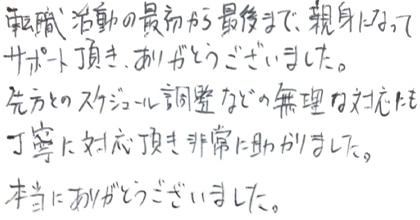 転職活動の最初から最後まで、親身になって
サポート頂き、ありがとうございました。
先方とのスケジュール調整などの無理な対応にも
丁寧に対応頂き非常に助かりました。
本当にありがとうございました。